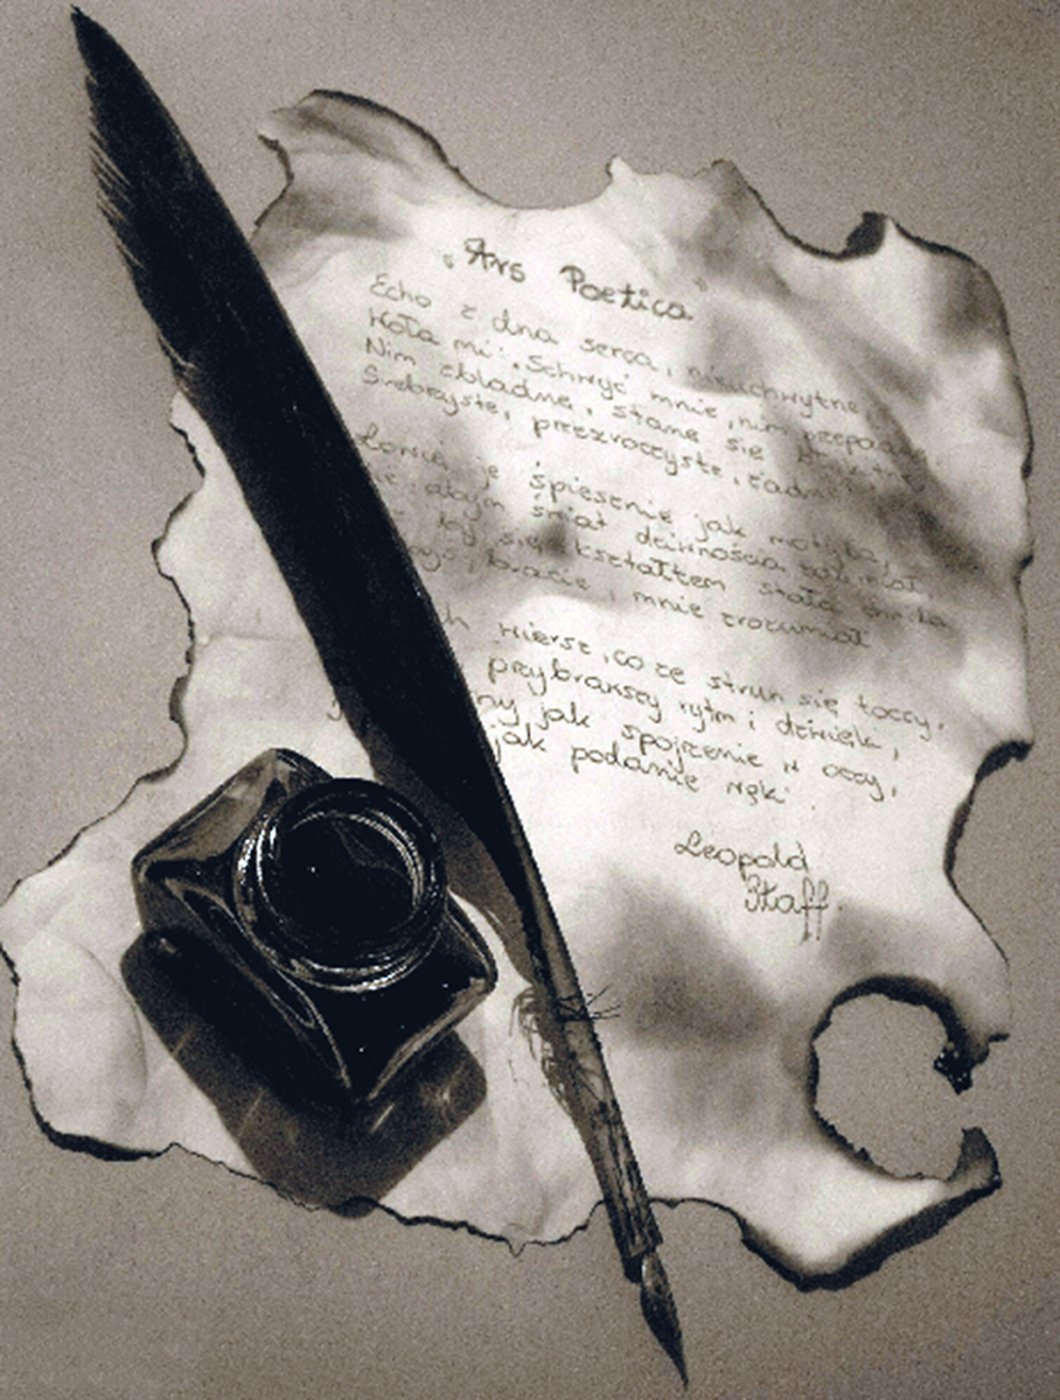 „Ars Poetica”
Echo z dna serca, nieuchwytne,
Woła mi: „Schwyć mnie, nim przepadnę,
Nim zbladnę, stanę się błękitne,
Srebrzyste, przezroczyste, żadne
Łowię je śpiesznie jak motyla,
abym świat dziwnością zdumiał,
by się kształtem stała chwila
, bracie, mnie zrozumiał
wiersz, co ze strun się toczy,
przybrawszy rytm i dźwięk,
jak spojrzenie w oczy,
jak podanie ręki.
Leopold
Staff.